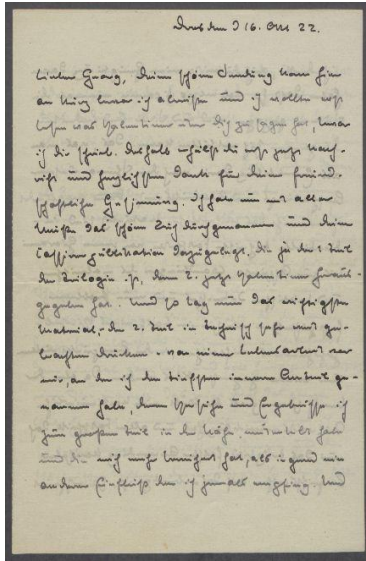 Dresden 16. Okt 22.
Lieber Georg, deine schöne Sendung kam hier
an kurz bevor ich abreiste und ich wollte erst
lesen was Valentiner über dich zu sagen hat, bevor
ich dir schrieb. Deshalb erhältst du erst jetzt Nach-
richt und herzlichsten Dank für deine freund-
schaftliche Gesinnung. Ich habe nun mit aller
Muße das schöne Buch durchgenommen und deine
publikation dazugelegt, die ja der 1. Teil
der Trilogie ist, deren 2. jetzt Valentiner heraus-
gegeben hat. Und so lag nun das wichtigste
Material, der 2. Teil in technisch sehr gut ge-
brachten Drucken, von einer Lebensarbeit vor
mir, an der ich den tiefsten inneren Anteil ge-
nommen habe, deren Versuche und Ergebnisse ich
zum großen Teil in der Nähe miterlebt habe
und die mich mehr bereichert hat, als irgend ein
anderer Einfluß den ich jemals empfing. Und